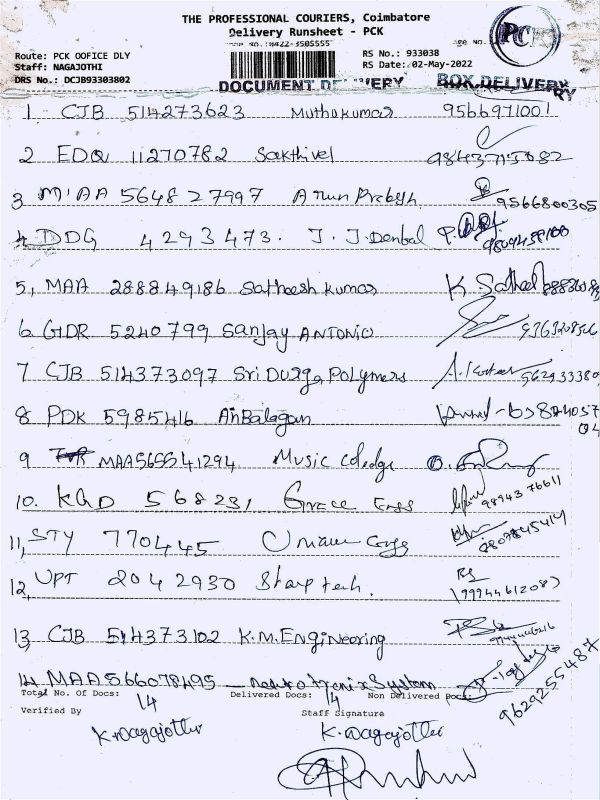 THE PROFESSIONAL COURIERS, Coimbatore
Delivery Runsheet - PCK
PCK
Route: PCK OOFICE DLY
RS No.: 933038
Staff: NAGAJOTHI
RS Date: 02-May-2022
DRS No.: DCJB93303802
DOCUMENT DELIVERY BOX DELIVERY
1 CJB 514273623 Muthukumar 9566971001
2 EDQ 11270782 Sakthivel
3 MAA 5648 27997 Arun Prakash 9566800305
4 DDG 4293473. J. J. Dental
5, MAA 288849186 Satheesh kumar K
6 GDR 5240799 Sanjay ANTONIO
7 CJB 514373097 Sri Durga Polymers
8 PDK 5985416 Anbalagan
9 MAA565541294 Music College
10. KGD 568231 Grace Engs 98943 76611
11, STY 770445
12, UPT 2042930 Sharp tech. (9994461208)
13, CJB 514373102 K.M. Engineering
14 MAA 566078495 System 9629255487
Total No. Of Docs: 14 Delivered Docs: 14 Non Delivered Docs:
Verified By Staff Signature
K. Nagajothi K. Nagajothi